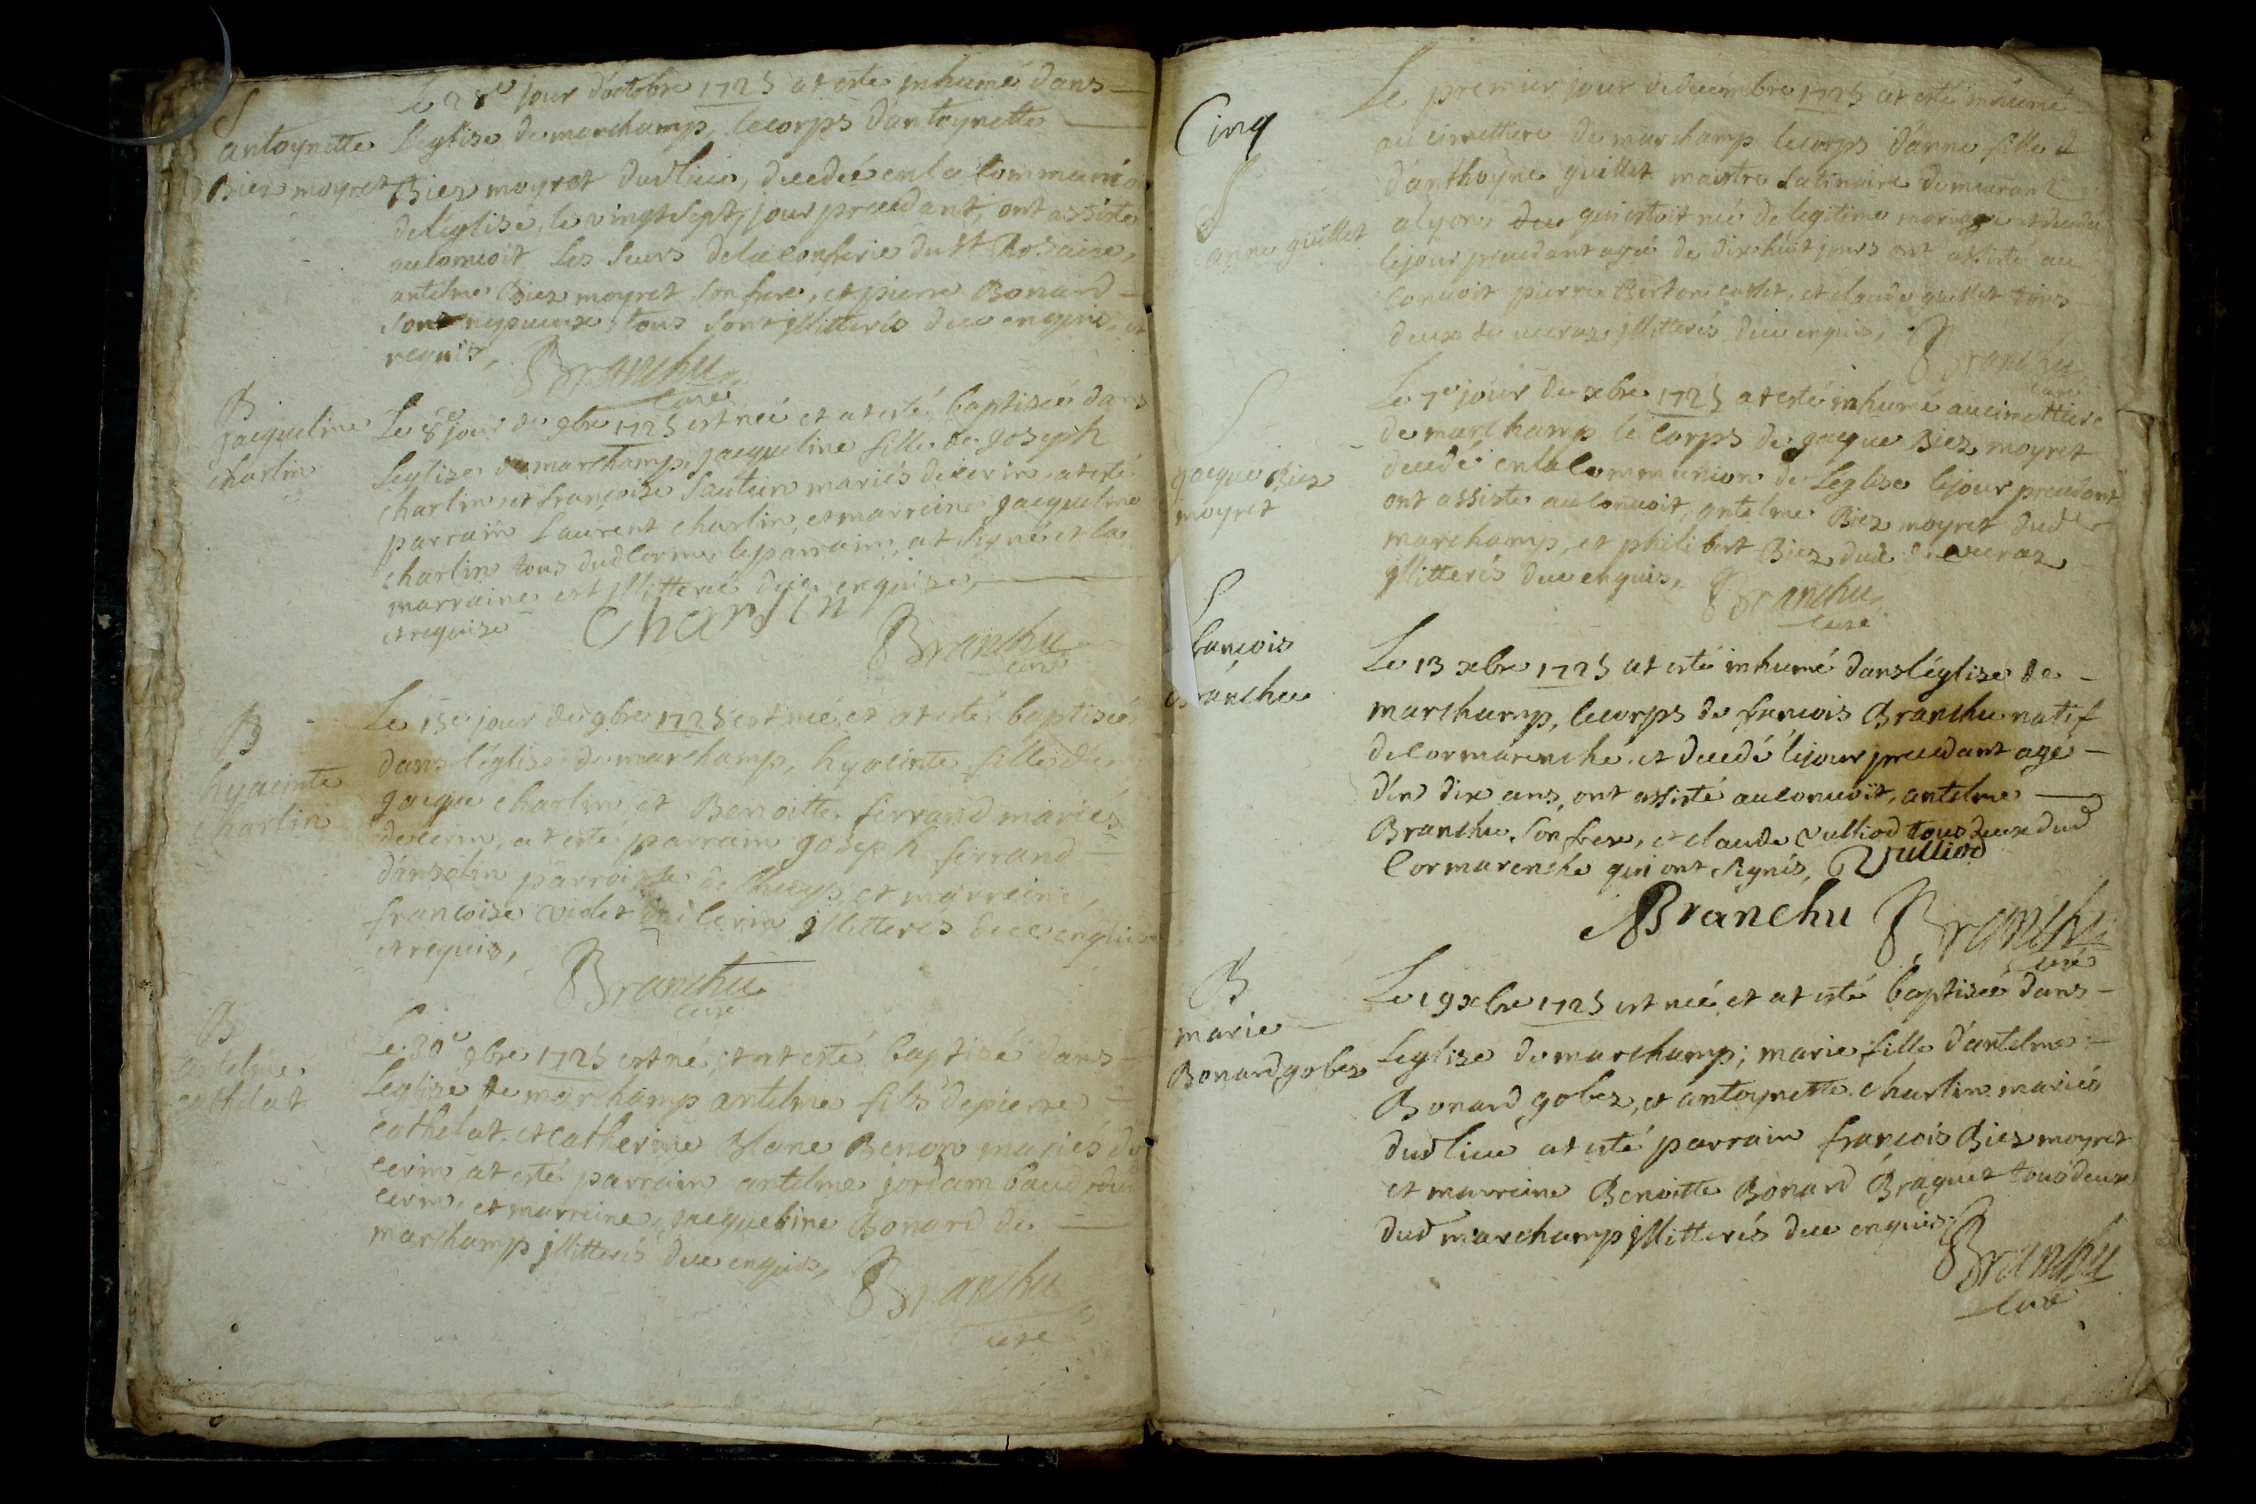 S
antoynette
Biez moyret
Le 28e jour d'octobre 1725 at esté inhumé dans
l'eglise de marchamp, le corps d'antoynette
Biez moyret dud lieu, decedée en la Communion
de l'église, le vingt sept, jour precedant, ont assisté
au convoit les seurs de la confrerie du st Rosaire,
antelme Biez moyret son frere, et pierre Bonard
son nepveux, tous sont jllitterés deue enquis et
requis, Branchu
curé
B
jacqueline
charlin
Le 8e jour de 9bre 1725 est née et at esté baptisée dans
l'eglise de marchamp, jacqueline fille de joseph
charlin, et françoise sautier mariés de cerin, at esté
parrain Laurent charlin, et marreine jacqueline
charlin tous dud cerin, le parrain at signé et la
marraine est jllitterée deue enquise
et requise
charlin
Branchu
curé
B
hyacinte
charlin
Le 15e jour de 9bre 1725 est née, et at esté baptisée
dans l'églize de marchamp, hyacinte fille de
jacque charlin, et Benoitte ferrand mariés
de cerin, at esté parrain joseph ferrand
d'ansolin parroisse de lhuys, et marreine,
françoise videt de cerin jllitterés deue enquis
et requis,
Branchu
curé
B
antelme
cathelat
Le 30e 9bre 1725 est né, et at esté baptisé dans
l'eglise de marchamp antelme fils de pierre
cathelat, et catherine Blanc Benon mariés de
cerin, at esté parrain antelme jordam baud dud
cerin, et marreine jacqueline Bonard de
marchamp jllitterés deue enquis,
Branchu
curé
Cinq
S
anne guillet
Le premier jour de decembre 1725 at esté inhumé
au cimettiere de marchamp le corps d'anne fille d
d'anthoyne guillet maistre satinaire demeurant
a lyon, qui estoit née de legitime mariage et decedée
le jour precedant agée de dix huit jours ont assisté au
convoit pierre Berton cadet, et claude guillet tous
deux de jllitterés deue enquis,
Branchu
curé
S
jacque Biez
moyret
Le 7e jour de xbre 1725 at esté inhumé au cimettiere
de marchamp le corps de jacque Biez moyret
decedé en la Communion de l'eglise le jour precedant
ont assisté au convoit, antelme Biez moyret dud
marchamp, et philibert Biez dud
jllitterés deue enquis,
Branchu
curé
S
françois
Branchu
Le 13 xbre 1725 at esté inhumé dans l'église de
marchamp, le corps de francois Branchu natif
de Cormarenche, et decedé le jour precedant agé
d'en dix ans, ont assisté au convoit, antelme
Branchu son frere, et claude vulliod tous deux dud
Cormarenche qui ont signés, Vulliod
Branchu Branchu
curé
B
marie
Bonard gobez
Le 19 xbre 1725 est née et at esté baptisée dans
l'eglize de marchamp, marie fille d'antelme
Bonard gobez, et antoynette charlin mariés
dud lieu at esté parrain françois Biez moyret
et marreine Benoitte Bonard Braguet tous deux
dud marchamp jllitterés deue enquis,
Branchu
curé